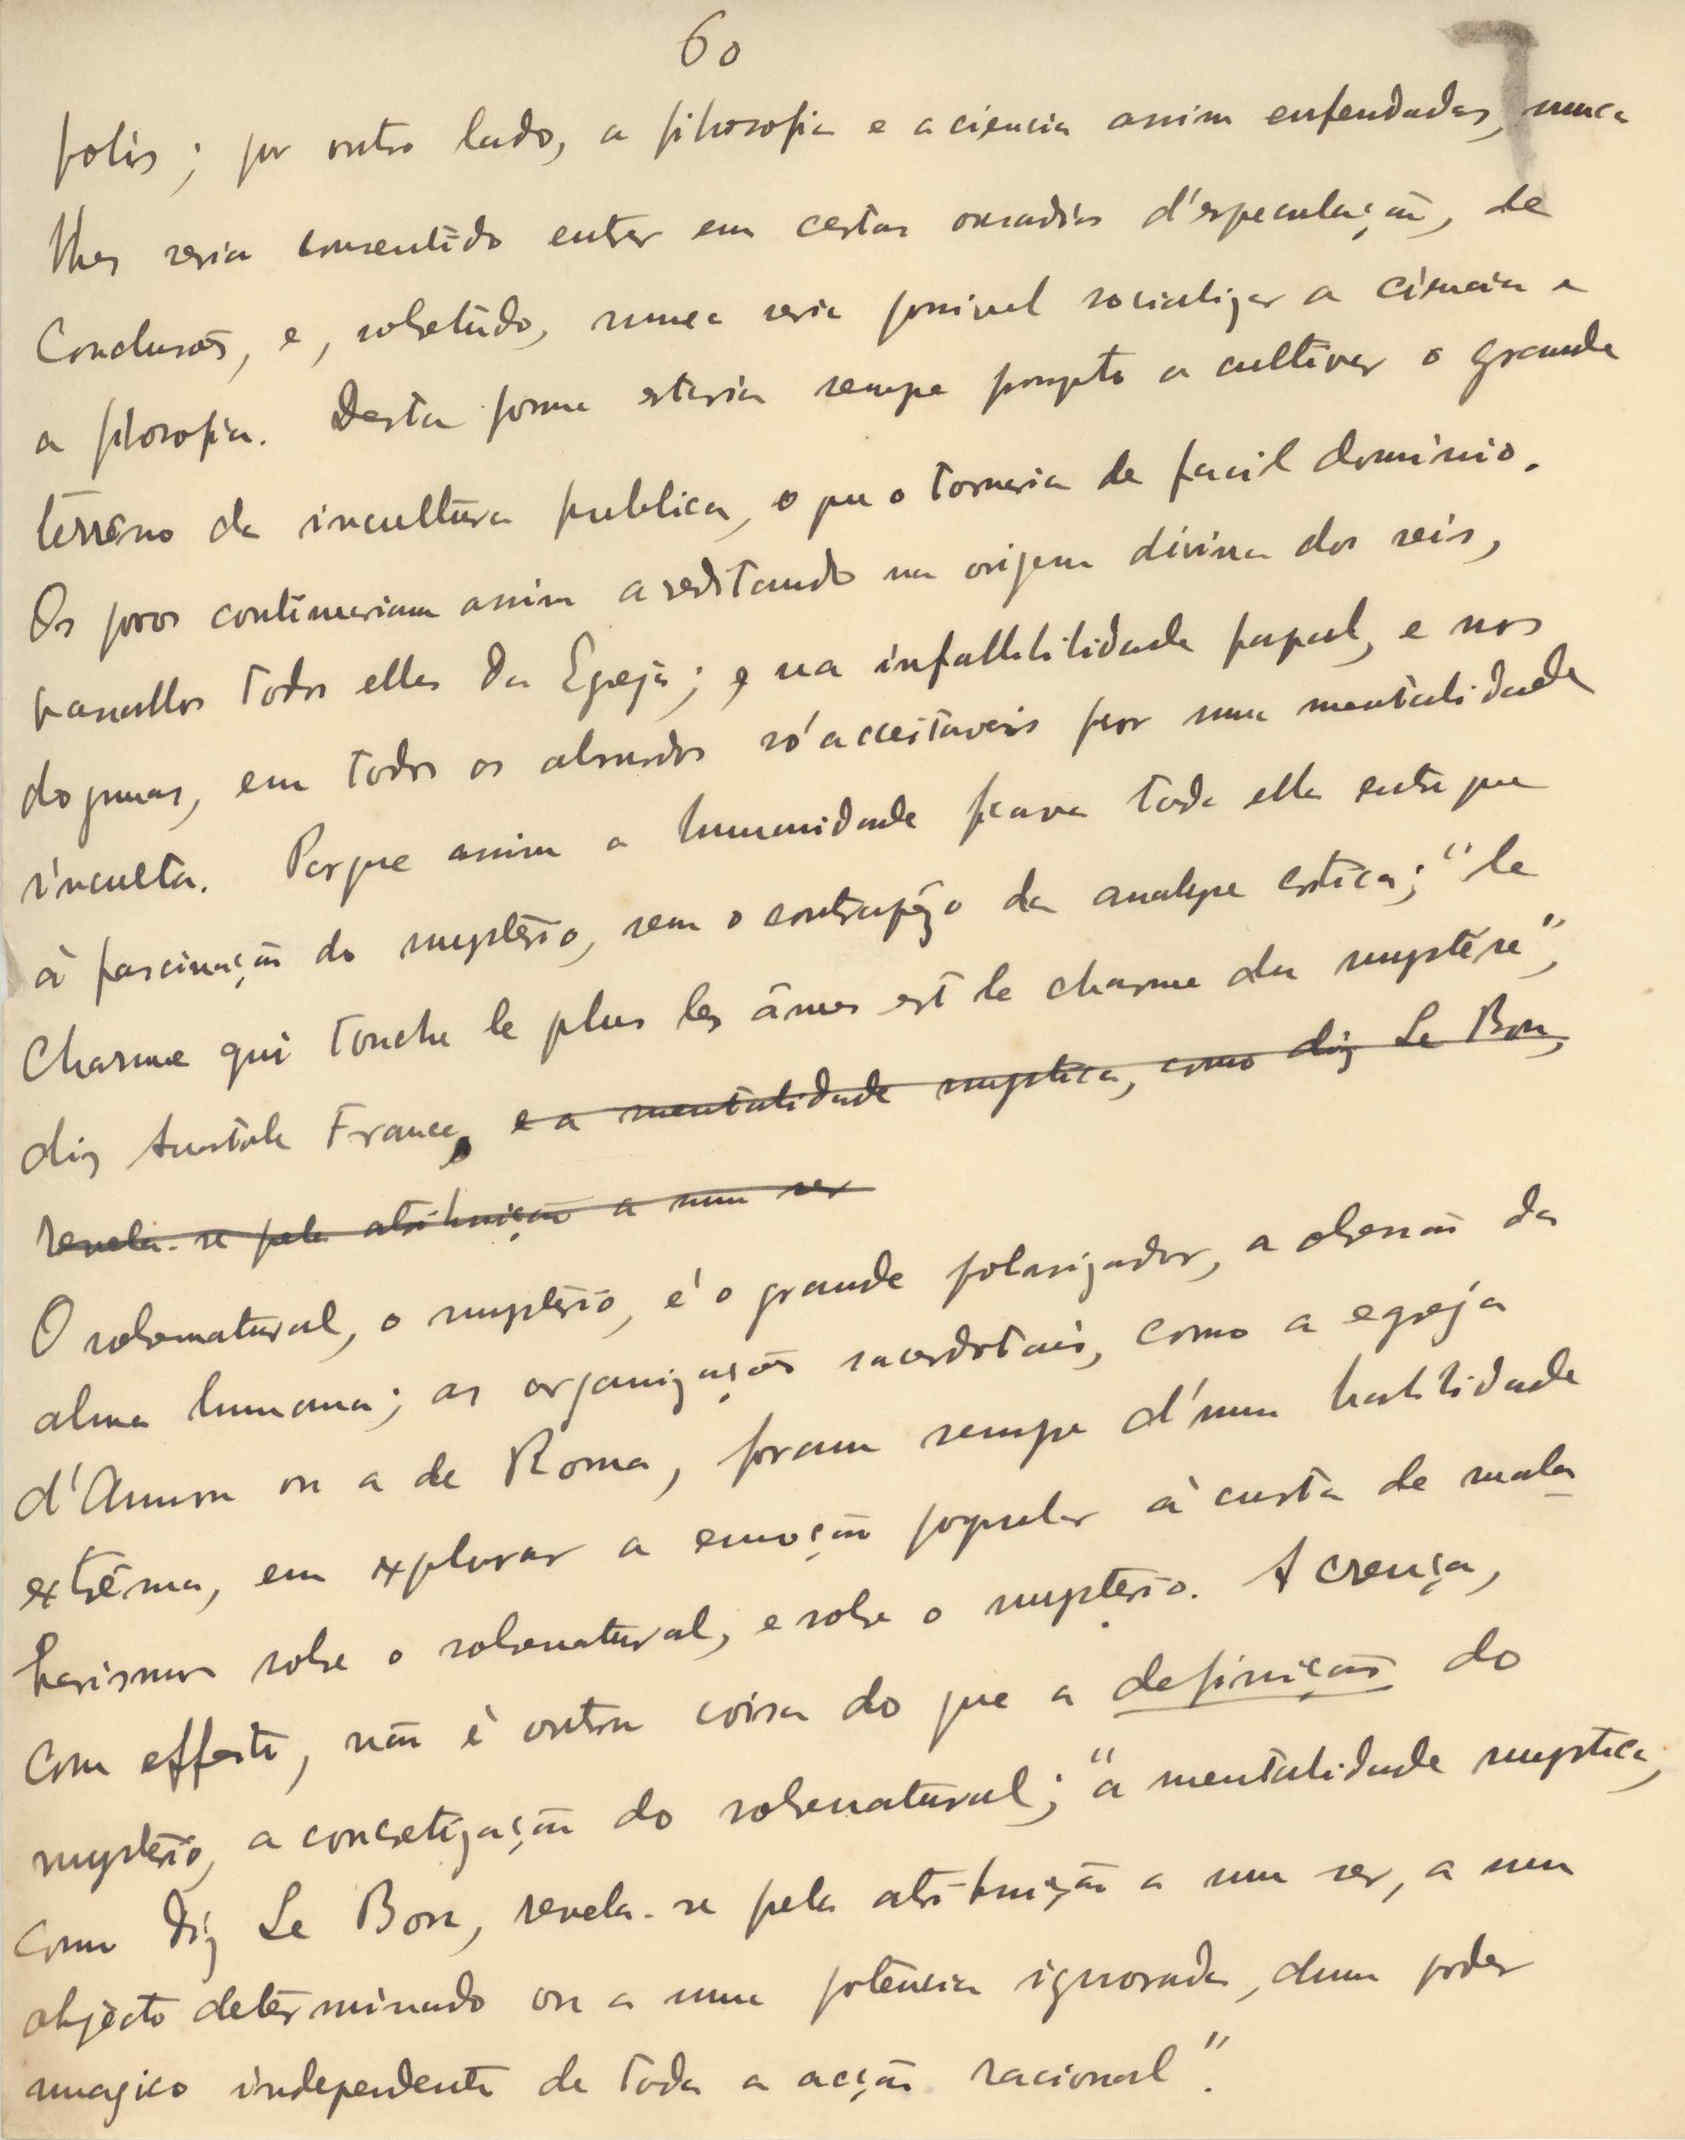 60
polis; por outro lado, a filosofia e a ciencia assim enfeudadas, nunca
lhes seria consentido entrar em certas ousadias d'especulação, de
Conclusões, e, sobretudo, nunca seria possivel socializar a ciencia e
a filosofia. Desta forma estaria sempre prompto a cultivar o grande
terreno da incultura publica, o que o tornaria de facil dominio.
Os povos continuariam assim acreditando na origem divina dos reis,
vassallos todos elles da Egreja; e na infallibilidade papal, e nos
dogmas, em todos os absurdos só acceitaveis por uma mentalidade
inculta. Porque assim a humanidade ficava toda ella entregue
á fascinação do mysterio, sem o contrapêzo da analyse critica; "le
Charme qui touche le plus les âmes est le charme du mystère",
diz Anatole France, e a mentalidade mystica, como diz Le Bon,
revela-se pela atribuição a um ser
O sobrenatural, o mysterio, é o grande polarizador, a obsessão da
alma humana; as organizações sacerdotais, como a egreja
d'Ammon ou a de Roma, foram sempre d'uma habilidade
extrêma, em explorar a emoção popular á custa de mala
barismos sobre o sobrenatural, e sobre o mysterio. A crença,
com effeito, não é outra coisa do que a definição do
mysterio, a concretização do sobrenatural; "a mentalidade mystica,
como diz Le Bon, revela-se pela atribuição a um ser, a um
objecto determinado ou a uma potencia ignorada, dum poder
magico independente de toda a acção racional".